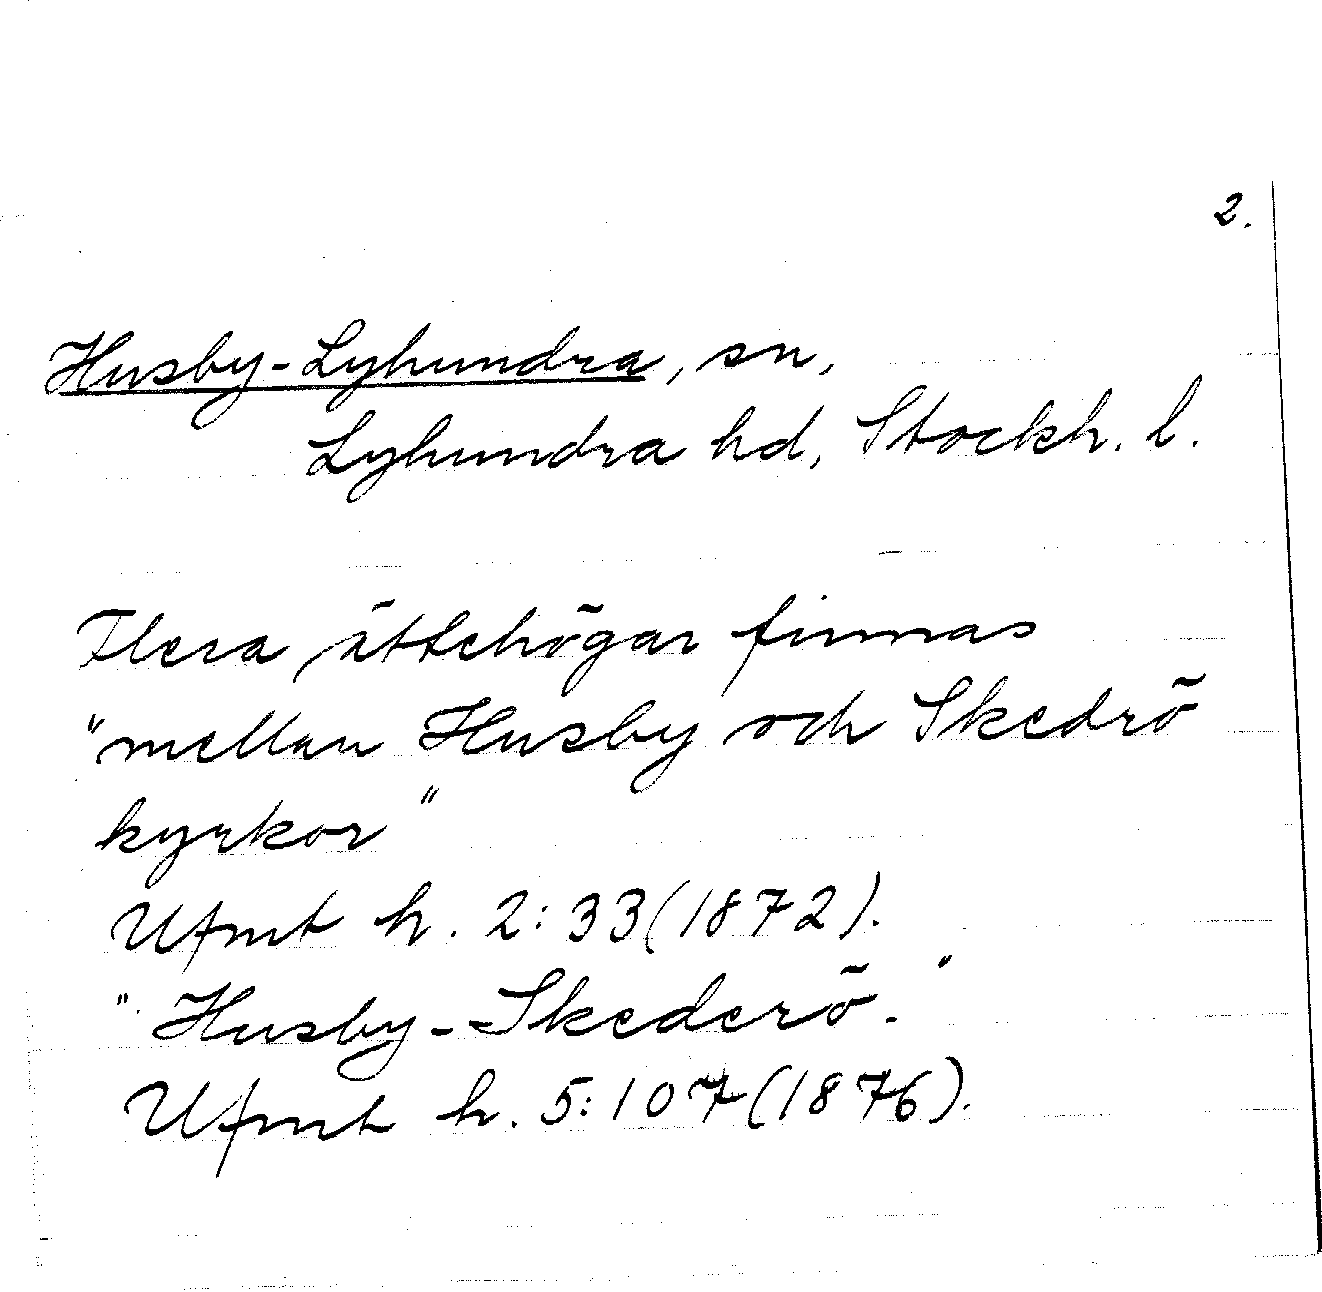 2.
Husby-Lyhundra, sn,
Lyhundra hd, Stockh. l.
Flera ättehögar finnas
"mellan Husby och Skedrö
kyrkor"
Ufmt h. 2:33(1872).
"Husby-Skederö."
Ufmt h. 5:107(1876).